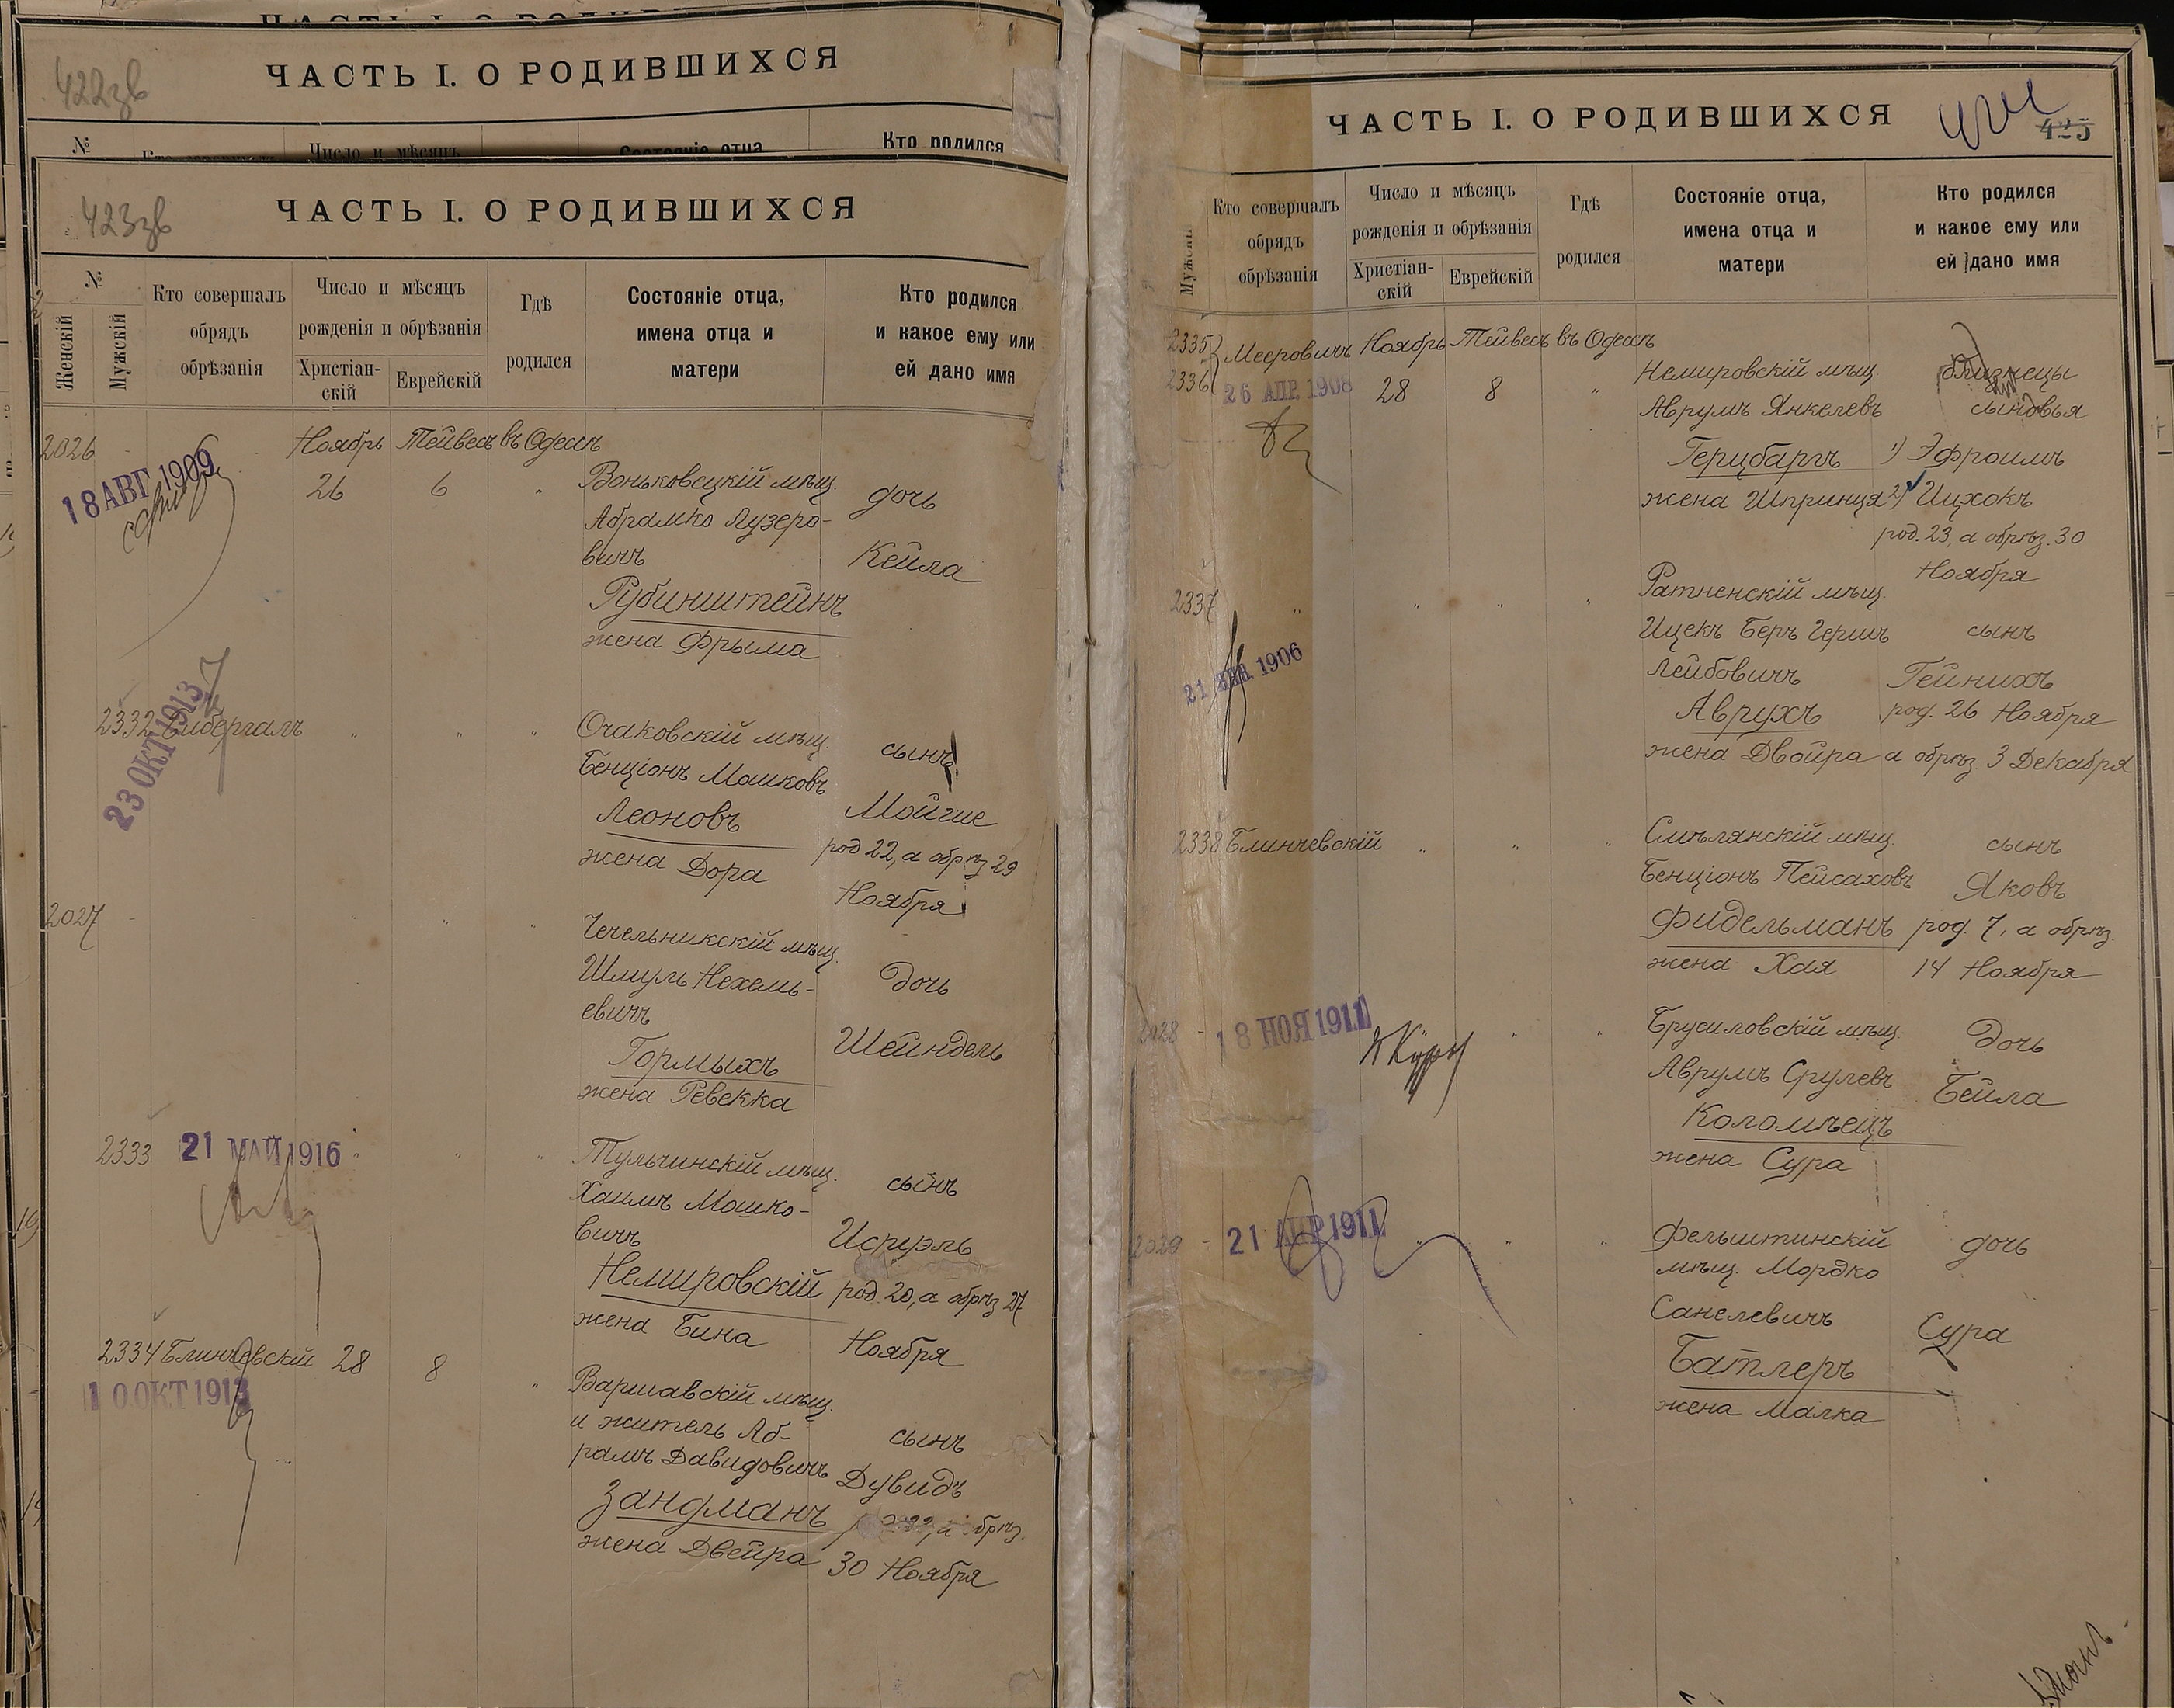 ЧАСТЬ I. О РОДИВШИХСЯ
422зв
ЧАСТЬ I. О РОДИВШИХСЯ
№
Число и мѣсяцъ
Состояніе отца
Кто родился
423зв
ЧАСТЬ I. О РОДИВШИХСЯ
№
Женскій
Мужскій
Кто совершалъ
обрядъ
обрѣзанія
Число и мѣсяцъ
рожденія и обрѣзанія
Христіан-
скій
Еврейскій
Гдѣ
родился
Состояніе отца,
имена отца и
матери
Кто родился
и какое ему или
ей дано имя
2026
18 АВГ 1909
Ноябрь Тейвесъ въ Одессѣ
26 6 "
Воньковецкій мѣщ.
Абрамко Лузеро-
вичъ
Рубинштейнъ
жена Фрыма
дочь
Кейла
2332 Зибергалъ " " "
23 ОКТ 1913
Очаковскій мѣщ.
Бенціонъ Мошковъ
Леоновъ
жена Дора
сынъ
Мойше
род 22, а обрѣз 29
Ноября
2027
Чечельникскій мѣщ.
Шмуль Нехемь-
евичъ
Гормыхъ
жена Ревекка
дочь
Шейндель
2333 21 МАЙ 1916
Тульчинскій мѣщ.
Хаимъ Мошко-
вичъ
Немировскій
жена Бина
сынъ
Исрерль
род 20, а обрѣз 27
Ноября
2334 Блинчевскій 28 8 "
10 ОКТ 1913
Варшавскій мѣщ.
и житель Аб-
рамъ Давидовичъ
Зандманъ
жена Двейра
сынъ
Дувидъ
обрѣз.
30 Ноября
ЧАСТЬ I. О РОДИВШИХСЯ
425
Кто совершалъ
обрядъ
обрѣзанія
Число и мѣсяцъ
рожденія и обрѣзанія
Христіан-
скій
Еврейскій
Гдѣ
родился
Состояніе отца,
имена отца и
матери
Кто родился
и какое ему или
ей дано имя
2335
2336
Мееровичъ Ноябрь Тейвесъ въ Одессѣ
26 АПР 1908 28 8 "
Немировскій мѣщ.
Аврумъ Янкелевъ
Герцбаргъ
жена Шпринця
близнецы
сыновья
1) Эфроимъ
2) Ицхокъ
род. 23, а обрѣз. 30
Ноября
2337 " " " "
21 1906
Ратненскій мѣщ.
Ицекъ Беръ Гершъ
Лейбовичъ
Аврухъ
жена Двойра
сынъ
Гейнихъ
род. 26 Ноября
а обрѣз. 3 Декабря
2338 Блинчевскій " " "
Смѣлянскій мѣщ.
Бенціонъ Пейсаховъ
Фидельманъ
жена Хая
сынъ
Яковъ
род. 7, а обрѣз.
14 Ноября
2028 - 18 НОЯ 1911
Брусиловскій мѣщ.
Аврумъ Срулевъ
Коломѣецъ
жена Сура
дочь
Бейла
2029 - 21 АПР 1911
Фельштинскій
мѣщ. Мордко
Санелевичъ
Батлеръ
жена Малка
дочь
Сура